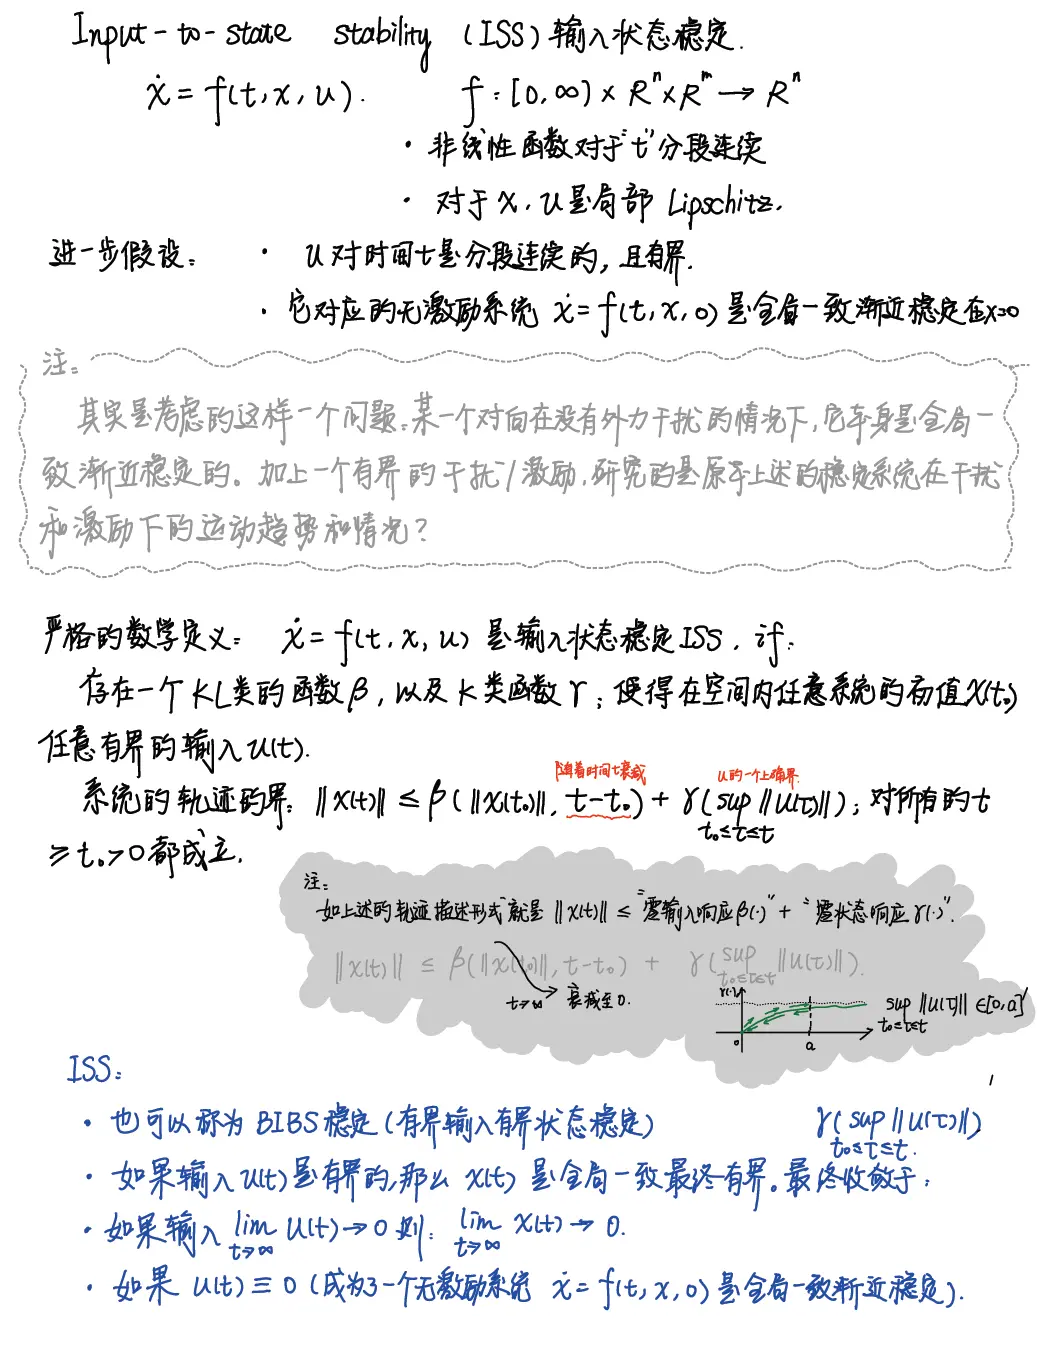 Input-to-state stability (ISS) 输入状态稳定.
ẋ = f(t, x, u). f: [0, ∞) × Rⁿ × Rᵐ → Rⁿ
· 非线性函数对于"t"分段连续
· 对于 x, u 是局部 Lipschitz.
进一步假设: · u 对时间 t 是分段连续的, 且有界.
· 它对应的无激励系统 ẋ = f(t, x, 0) 是全局一致渐近稳定在x=0
注:
其实是考虑的这样一个问题. 某一个对向在没有外力干扰的情况下, 它本身是全局一
致渐近稳定的。加上一个有界的干扰/激励, 研究的是原本上述的稳定系统在干扰
和激励下的运动趋势和情况?
严格的数学定义: ẋ = f(t, x, u) 是输入状态稳定ISS, if:
存在一个KL类的函数β, 以及K类函数γ; 使得在空间内任意系统的初值x(t₀)
任意有界的输入u(t).
随着时间t衰减 u的一个上确界
系统的轨迹的界: ‖x(t)‖ ≤ β(‖x(t₀)‖, t-t₀) + γ(sup ‖u(τ)‖); 对所有的t
t₀≤τ≤t
≥ t₀>0 都成立.
注:
如上述的轨迹描述形式就是 ‖x(t)‖ ≤ "零输入响应β(·)" + "零状态响应γ(·)".
‖x(t)‖ ≤ β(‖x(t₀)‖, t-t₀) + γ(sup ‖u(τ)‖).
t₀≤τ≤t
t→∞ 衰减至0.
γ(·)
sup ‖u(τ)‖ ∈[0,a]
t₀≤τ≤t
0 a
ISS:
· 也可以称为 BIBS 稳定 (有界输入有界状态稳定) γ(sup ‖u(τ)‖)
t₀≤τ≤t.
· 如果输入 u(t) 是有界的, 那么 x(t) 是全局一致最终有界。最终收敛于:
· 如果输入 lim u(t) → 0 则: lim x(t) → 0.
t→∞ t→∞
· 如果 u(t) ≡ 0 (成为了一个无激励系统 ẋ = f(t, x, 0) 是全局一致渐近稳定).